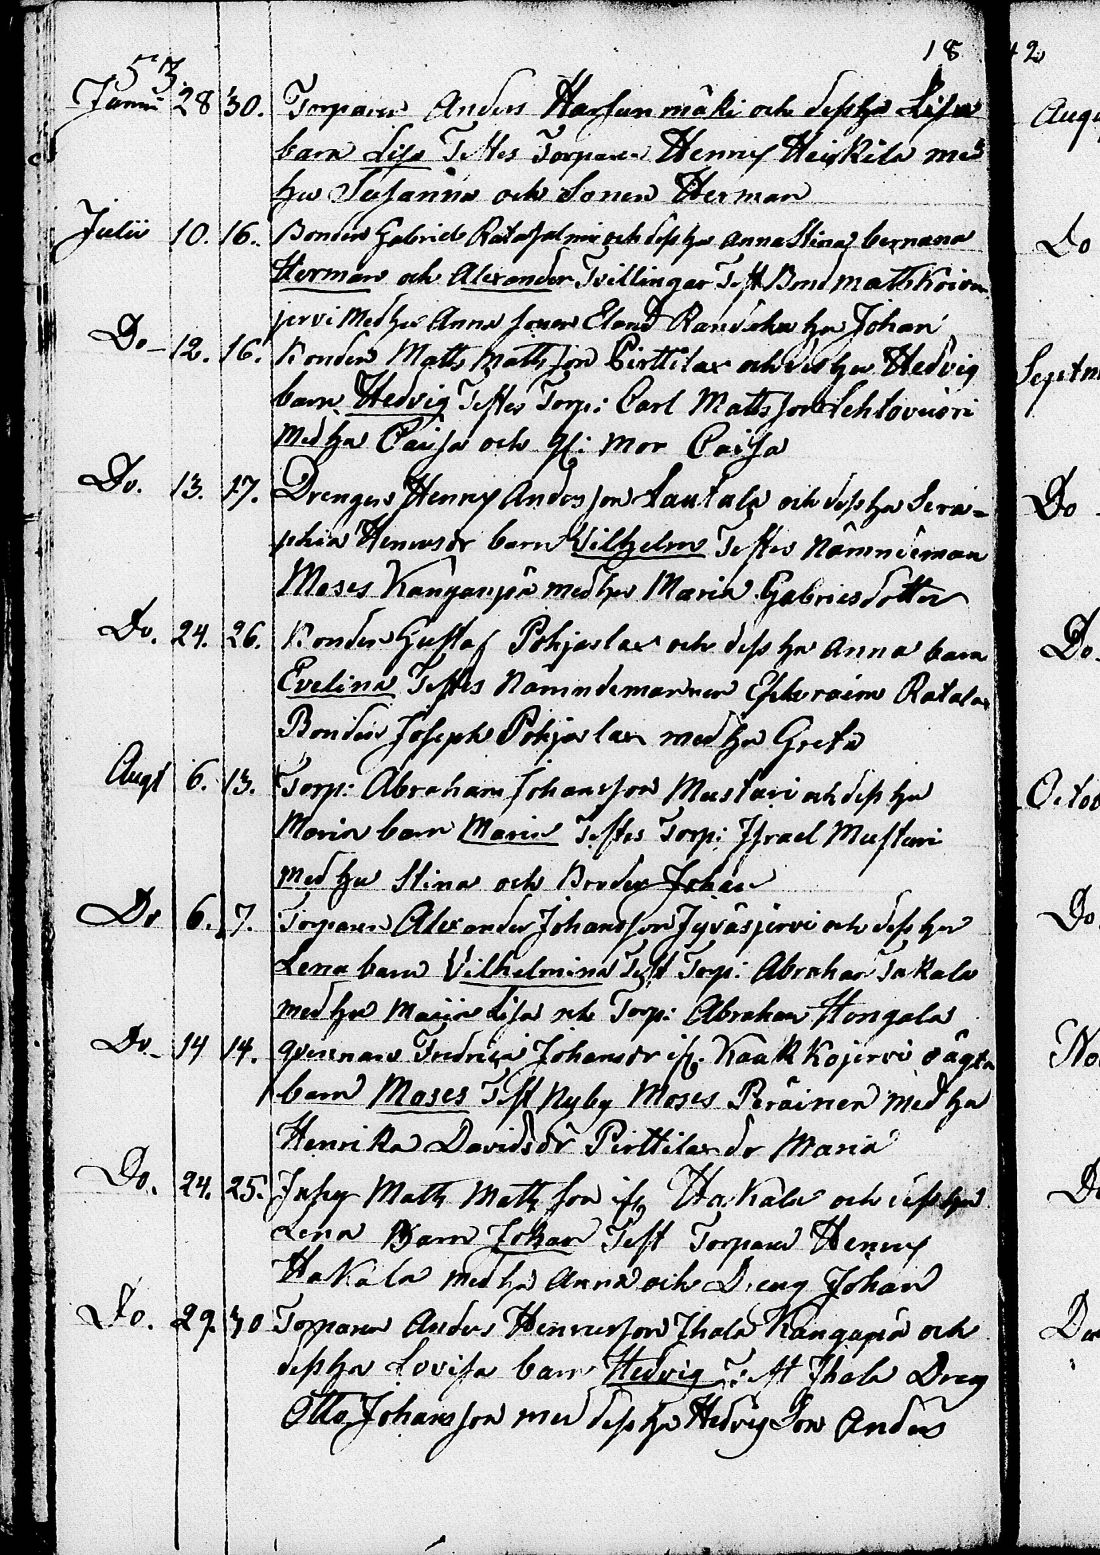 53
18 42
Junii 28 30. Torparen Anders Harjunmäki och dess hu Lisa
barn Lisa Testes Torparen Henny Heikkilä med
hu Susanna och Sonen Herman
Julii 10. 16. Bonden Gabriel Ratasalmi och dess hu Anna Stina bernana
Herman och Alexander Tvillingar Test Bond Matts Koivu-
jervi Med hu Anna sonen Eland Randska hu Johan
Do 12. 16. Bonden Matts Mattsson Pirttilax och des hu Hedvig
barn Hedvig Testes Torp: Carl Mattsson Lehtovuori
Med hu Caisa och gl: Mor Caisa
Do. 13. 17. Drengen Henny Anderson Lautala och dess hu Sera-
phia Henersdr barn Vilhelm Testes Nämndeman
Moses Kanganpä med hu Maria Gabrielsdotter
Do. 24. 26. Bonden Gustaf Pohjaslax och dess hu Anna barn
Evelina Testes Nämndemannen Ephraim Ratalax
Bonden Joseph Pohjaslax med hu Greta
Augt 6. 13. Torp: Abraham Johansson Mustari och dess hu
Maria barn Maria Testes Torp: Israel Mustari
Med hu Stina och Broder Johan
Do 6. 7. Torparen Alexander Johansson Jyväsjervi och dess hu
Lena barn Vilhelmina Test Torp: Abraham Takala
med hu Maria Lisa och Torp: Abraham Hongala
Do 14 14. qvinnan Fredrica Johansdr ifr. Kaakkojervi oägta
barn Moses Test Nyby Moses Peräinen med hu
Henrika Davidsdr Pirttilax dr Maria
Do. 24. 25. Inhy Matts Mattsson ifr Hakala och dess hu
Lena Barn Johan Test Torparen Henny
Hakala med hu Anna och Dreng Johan
Do. 29. 30 Torparen Anders Hennersson Ihala Kangapä och
dess hu Lovisa barn Hedvig Test Ihala Dreng
Otto Johansson med dess hu Hedvig Son Anders
Augu
Do
Septem
Do
Do.
Octob
Do.
No
Do